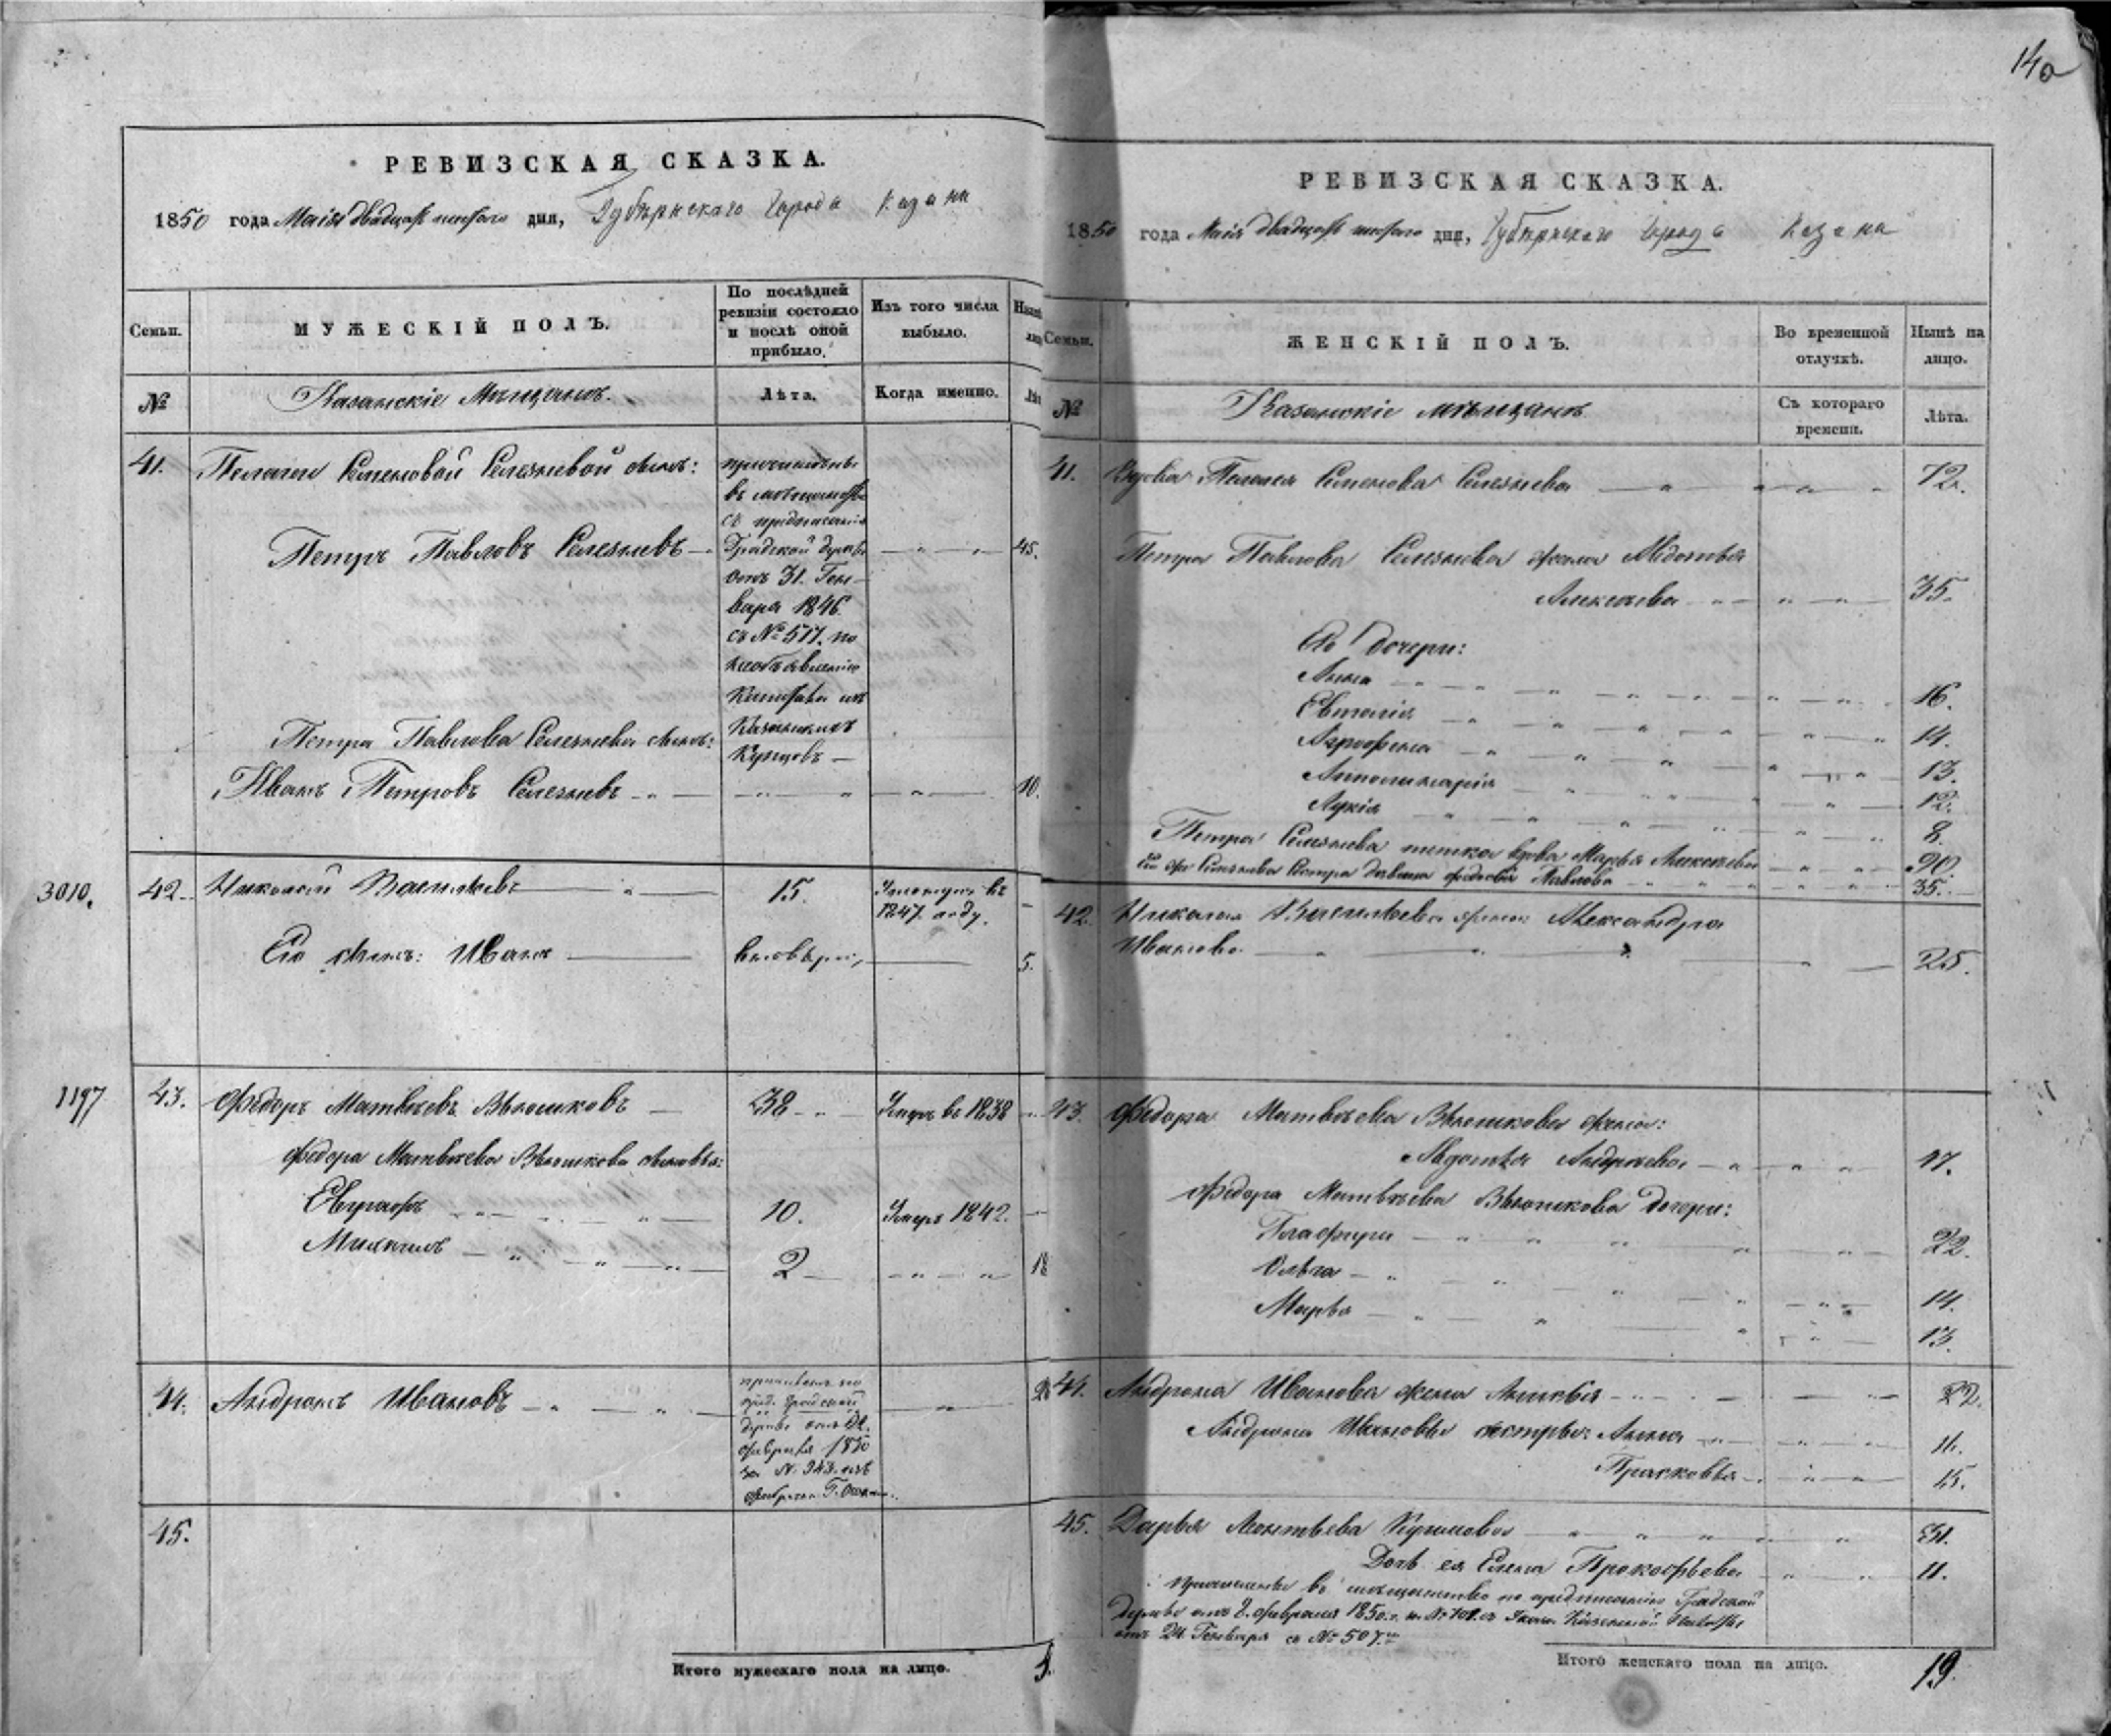 140
РЕВИЗСКАЯ СКАЗКА.
1850 года Маія двадцать шестаго дня, Губернскаго Города Казани
Семьи.
МУЖЕСКІЙ ПОЛЪ.
По послѣдней
ревизіи состояло
и послѣ оной
прибыло.
Изъ того числа
выбыло.
№
Казанскіе Мѣщане.
Лѣта.
Когда именно.
41. Пелагеи Семеновой Селезневой сынъ:
Петръ Павловъ Селезневъ 45.
причислены
въ мѣщанство
съ предписанія
Градской думы
отъ 31. Ген-
варя 1846.
съ № 517. по
необъявленію
Капитала изъ
Казанскихъ
Купцовъ
Петра Павлова Селезнева сынъ:
Иванъ Петровъ Селезневъ 10.
3010. 42. Николай Васильевъ 15.
въ
1847. году.
Его сынъ: Иванъ 5.
1197 43. Федоръ Матвѣевъ Вѣюшковъ 38 Умеръ въ 1838
Федора Матвѣева Вѣюшкова сыновья:
Евграфъ 10. Умеръ 1842.
Михаилъ 2 18
44. Андронъ Ивановъ
Градской
думы
февраля 1850
за № 943.
45.
Итого мужескаго пола на лицо.
РЕВИЗСКАЯ СКАЗКА.
1850 года Маія двадцать шестаго дня, Губернскаго Города Казани
Семьи.
ЖЕНСКІЙ ПОЛЪ.
Во временной
отлучкѣ.
Нынѣ на
лицо.
№
Казанскіе мѣщане
Съ котораго
времени.
Лѣта.
41. Вдова Пелагея Семенова Селезнева 72.
Петра Павлова Селезнева жена Авдотья
Алексѣева 35.
Его дочери:
Анна 16.
Евталія 14.
Агрофена 13.
Апполинарія 12.
Лукія 8.
Петра Селезнева тетка вдова Марья Алексѣева 90.
Его же Селезнева сестра девица Федосья Павлова 35.
42. Николая Васильева жена Александра
Иванова 25.
43. Федора Матвѣева Вѣюшкова жена:
Авдотья Андреева 47.
Федора Матвѣева Вѣюшкова Дочери:
Глафира 22.
Ольга 14.
Марья 13.
44. Андрона Иванова жена 22.
Андрона Иванова сестры: Анна
Прасковья 15.
45. Дарья Леонтьева 51.
Дочь ея Елена Прокофьева 11.
Причислены въ мѣщанство по предписанію Градской
Думы отъ 8. февраля 1850. г. за № Указа Казенной Палаты
отъ 24 Генваря съ № 507.
Итого женскаго пола на лицо. 19.